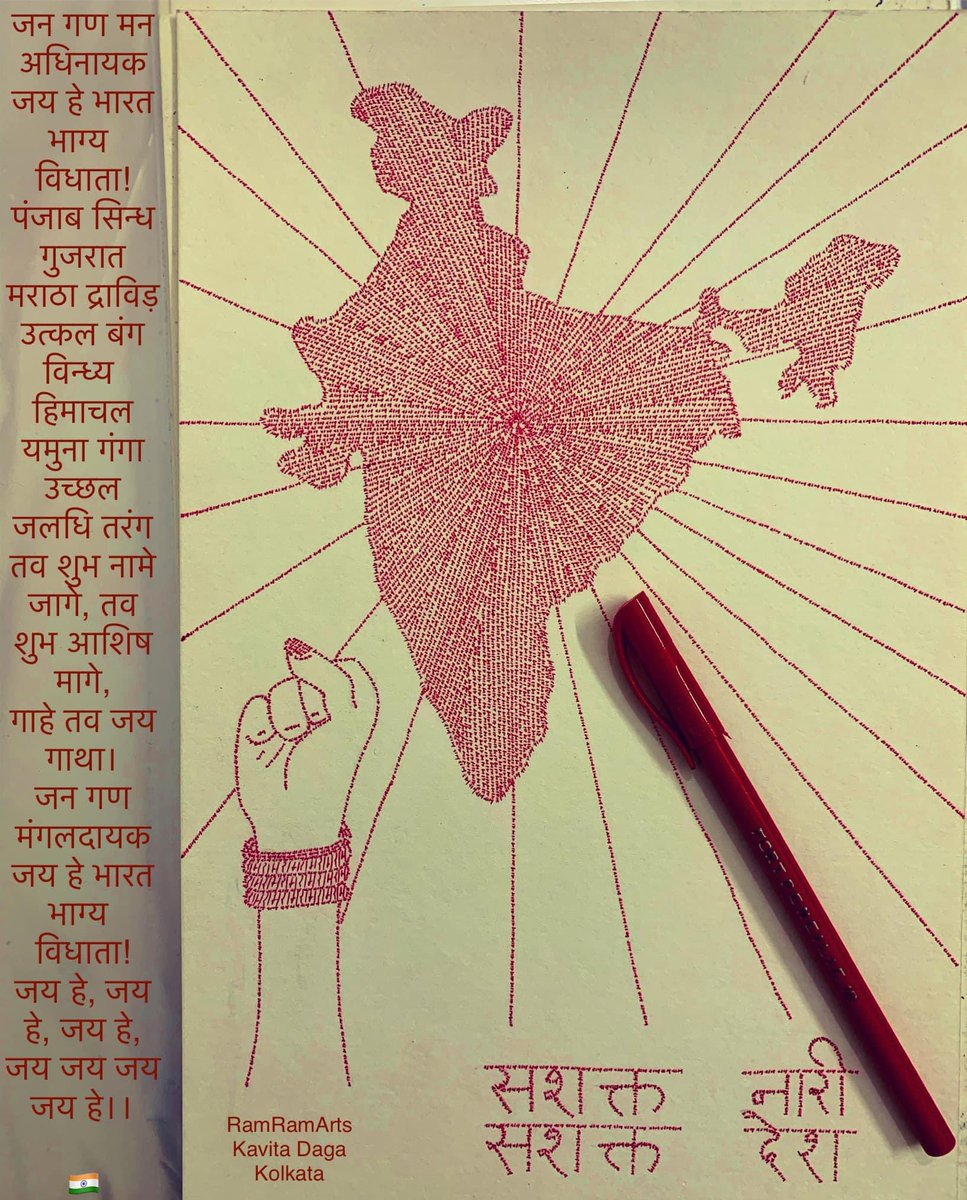 जन गण मन
अधिनायक
जय हे भारत
भाग्य
विधाता!
पंजाब सिन्ध
गुजरात
मराठा द्राविड़
उत्कल बंग
विन्ध्य
हिमाचल
यमुना गंगा
उच्छल
जलधि तरंग
तव शुभ नामे
जागे, तव
शुभ आशिष
मागे,
गाहे तव जय
गाथा।
जन गण
मंगलदायक
जय हे भारत
भाग्य
विधाता!
जय हे, जय
हे, जय हे,
जय जय जय
जय हे।।
सशक्त नारी
सशक्त देश
RamRamArts
Kavita Daga
Kolkata